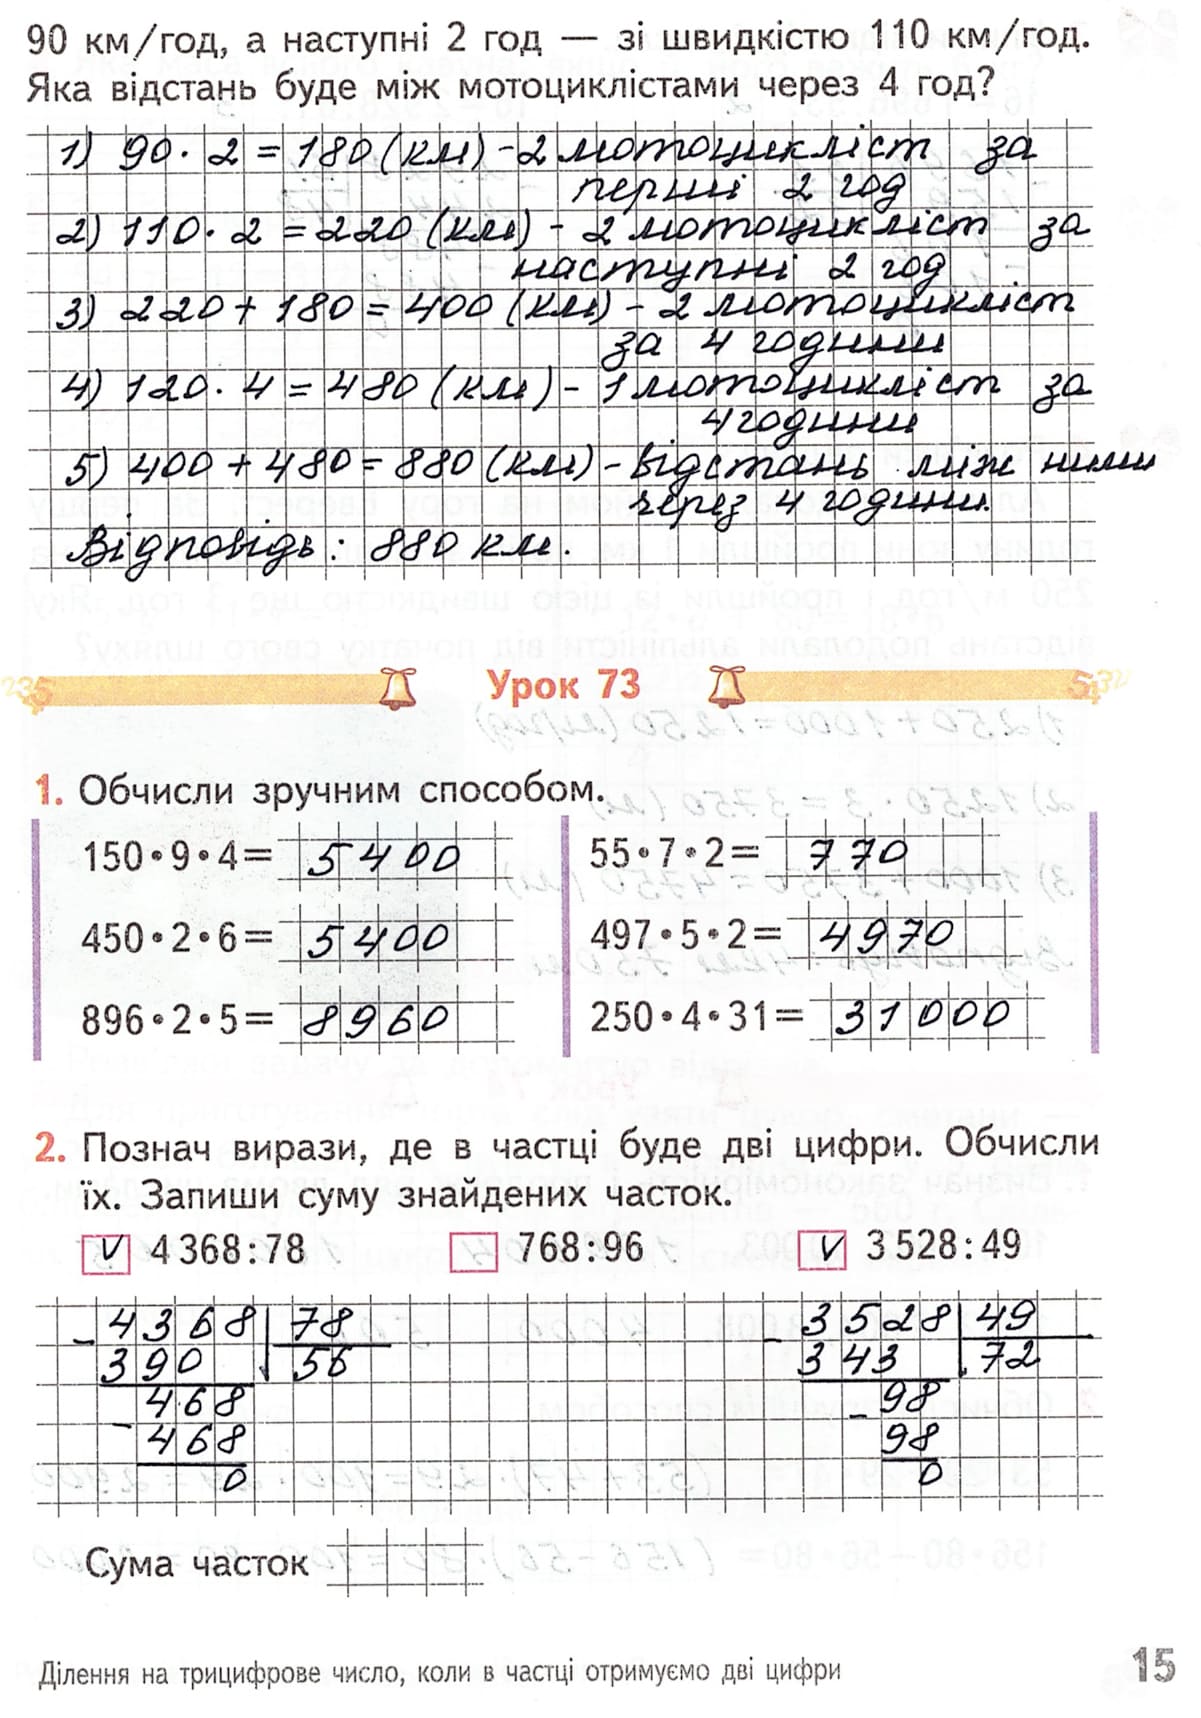 90 км/год, а наступні 2 год — зі швидкістю 110 км/год.
Яка відстань буде між мотоциклістами через 4 год?
1) 90 · 2 = 180 (км) - 2 мотоцикліст за
перші 2 год
2) 110 · 2 = 220 (км) - 2 мотоцикліст за
наступні 2 год
3) 220 + 180 = 400 (км) - 2 мотоцикліст
за 4 години
4) 120 · 4 = 480 (км) - 1 мотоцикліст за
4 години
5) 400 + 480 = 880 (км) - відстань між ними
через 4 години.
Відповідь: 880 км.
Урок 73
1. Обчисли зручним способом.
150 • 9 • 4 = 5400
55 • 7 • 2 = 770
450 • 2 • 6 = 5400
497 • 5 • 2 = 4970
896 • 2 • 5 = 8960
250 • 4 • 31 = 31000
2. Познач вирази, де в частці буде дві цифри. Обчисли
їх. Запиши суму знайдених часток.
V 4 368 : 78 768 : 96 V 3 528 : 49
- 4368 78 - 3528 49
390 56 343 72
- 468 - 98
468 98
0 0
Сума часток
Ділення на трицифрове число, коли в частці отримуємо дві цифри
15